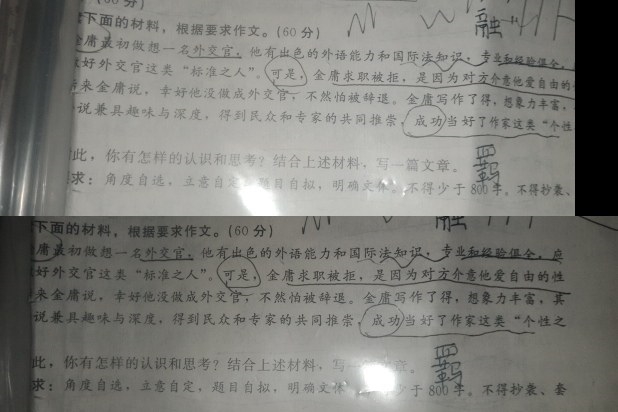 下面的材料，根据要求作文。(60 分)
融
金庸最初做想一名外交官，他有出色的外语能力和国际法知识，专业和经验俱全，
好外交官这类“标准之人”。可是，金庸求职被拒，是因为对方介意他爱自由的
来金庸说，幸好他没做成外交官，不然怕被辞退。金庸写作了得，想象力丰富，
说兼具趣味与深度，得到民众和专家的共同推崇，成功当好了作家这类“个性
此，你有怎样的认识和思考？结合上述材料，写一篇文章。
求：角度自选，立意自定，题目自拟，明确文体。不得少于 800 字。不得抄袭、
下面的材料，根据要求作文。(60 分)
庸最初做想一名外交官，他有出色的外语能力和国际法知识，专业和经验俱全，应
好外交官这类“标准之人”。可是，金庸求职被拒，是因为对方介意他爱自由的性
来金庸说，幸好他没做成外交官，不然怕被辞退。金庸写作了得，想象力丰富，其
说兼具趣味与深度，得到民众和专家的共同推崇，成功当好了作家这类“个性之
此，你有怎样的认识和思考？结合上述材料，写一 章。
求：角度自选，立意自定，题目自拟，明确文体 少于 800 字。不得抄袭、套